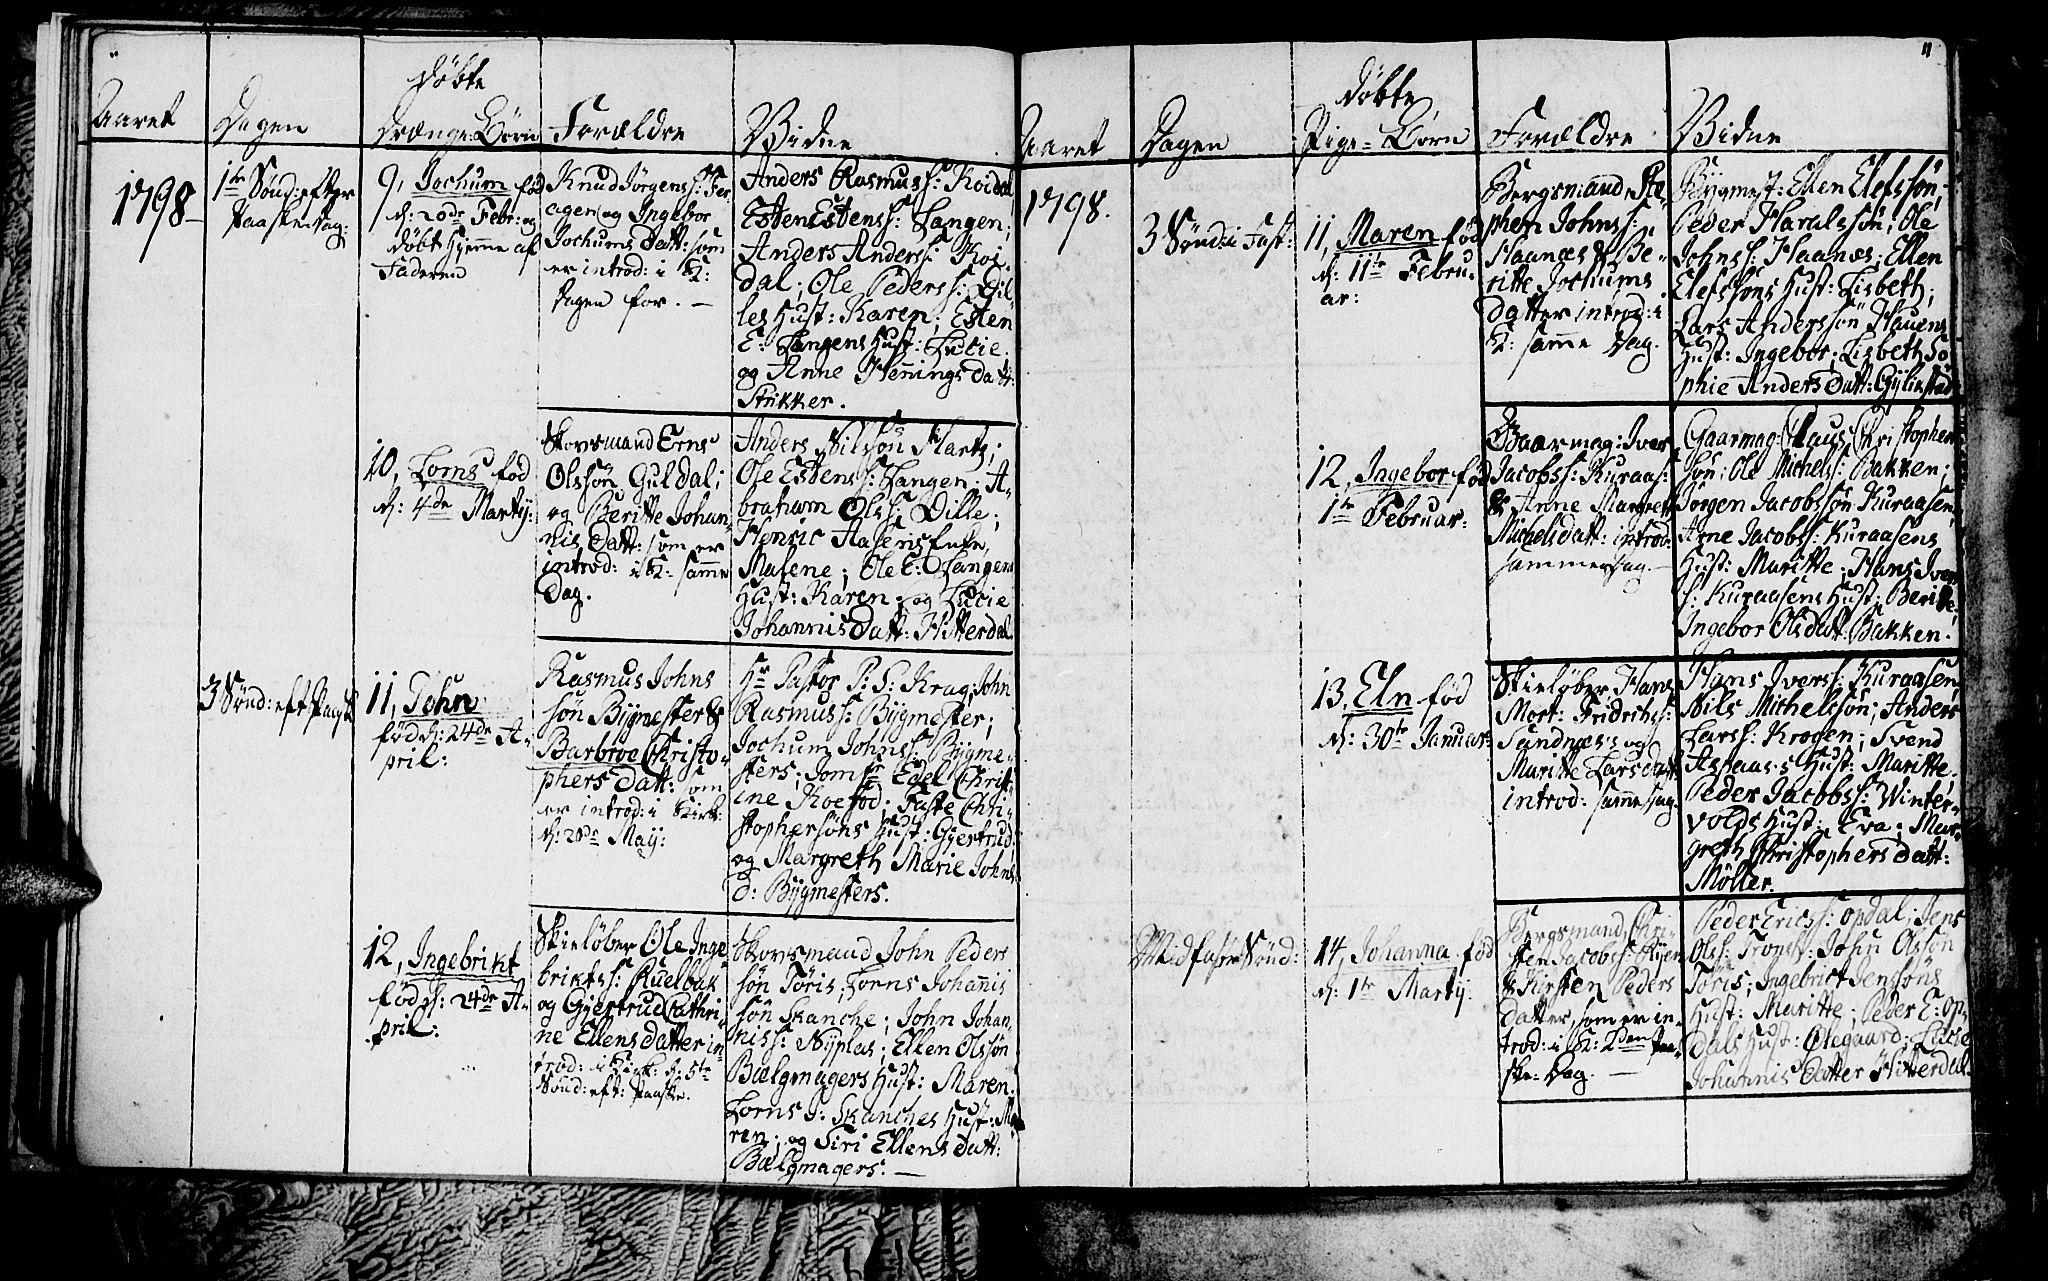 Aaret
Dagen
Døbte
Drænge-Børn
Forældre
Vidne
1798
1te Sønd: efter
Paaskedag:
9, Jochum fød
d: 20de Febr: og
døbt hjeme af
Faderen
Knud Jörgens:
og Ingebor
Jochums Datt: som
er introd: i K:
Dagen for. —
Anders Rasmuss: Koidal
Esten Estens: Langen;
Anders Anderss: Koi-
dal; Ole Peders: Dil-
les Hust: Karen; Esten
E: Langens Hust: Lucie
og Anne Hennings Datt:
Strikker.
10, Lorns fød
d: 4de Martij:
Skovsmand Erns
Olssön Guldal;
og Beritte Johan-
nis Datt: som er
introd: i K: samme
Dag.
Anders Nilssön Hartz;
Ole Estens: Langen; A-
braham Olss: Dille;
Henric Aasens Enke,
Malene; Ole E: Langens
Hust: Karen; og Lucie
Johannis Datt: Hitterdal.
3 Sønd: eft Paaske
11, John
fød d: 24de A-
pril:
Rasmus Johns
sön Bygmester &
Barbroe Christo-
phers Datt: som
er introd: i Kirk:
d: 28de Maij:
Hr Pastor P: S: Krag; John
Rasmuss: Bygmester;
Jochum Johns: Bygme-
sters; Jomfr Edel Christ-
ine Koefod; Faste Chri-
stophersöns Hust: Gjertrud:
og Margreth Marie Johns
D: Bygmesters.
12, Ingebrikt
fød d: 24de A-
pril:
Skieløber Ole Inge
brikts: Kuelbak
og Gjertrud Cathri-
ne Ellens datter in-
trod: i Kirk: d: 5te
Sønd: eft: Paaske.
Skovsmand John Peders
sön Töris; Lorns Johanis
sön Skanche; John Johan-
niss: Nyplas; Ellen Olssön
Bælgmagers Hust: Maren.
Lorns J: Skanches Hust: Ma-
ren; og Siri Ellens Datt:
Bælgmagers: —
11
Aaret
Dagen
Døbte
Pige-Børn
Forældre
Vidne
1798.
3 Sönd: i Fast:
11, Maren fød
d: 11te Febru-
ar:
Bergsmand Ste-
phen Johns:
Haanæs & Be-
ritte Jochums
datter introd: i
K: samme Dag.
Bygmest: Ellen Elefssön;
Peder Haralssön; Ole
Johns: Haanæs; Ellen
Elefssöns Hust: Lisbeth;
Lars Anderssön Hauens
Hust: Ingebor; Lisbeth So
phie Anders Datt: Gylistad
12, Ingebor fød
1te Februar:
Gaarmag: Iver
Jacobss: Kuraas:
& Anne Margreth
Michels datt: introd:
sammesdag. —
Gaarmag: Claus Christophers
sön; Ole Michelss: Bakken;
Jörgen Jacobssön Kuraasen;
Arne Jacobs: Kuraasens
Hust: Maritte; Hans Iver
s: Kuraasens Hust: Beritte.
Ingebor Ols Datt: Bakken.
13, Eln fød
d: 30te Januar:
Skieløber Hans
Mort: Fridrichs:
Sundnæs og
Maritte Lars datt
introd: samme dag.
Hans Ivers: Kuraasen;
Nils Michelssön; Anders
Larss: Krogen; Svend
Aspaas's Hust: Maritte.
Peder Jacobss: Winter-
volds Hust: Eva; Mar-
greth Christophers datt:
Möller.
Midfaste Sönd:
14, Johanna fød
d: 1te Martij:
Bergsmand Chri-
sten Jacobss: Ryen
& Kirsten Peders
datter, som er in-
trod: i K: 2den Paa-
ske-Dag. —
Peder Erics: Opdal; Jens
Olss: Trons; John Olssön
Töris; Ingebrict Jenssöns
Hust: Maritte; Peder E: Op-
dals Hust: Olegaard; Lucie
Johannis Datter Hitterdal.